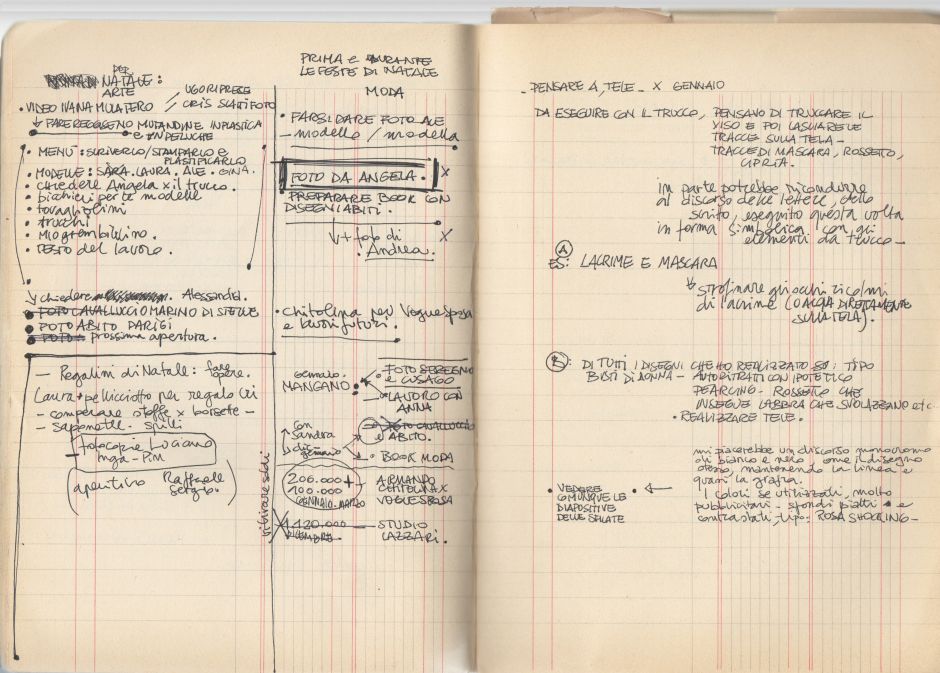 per
NATALE:
ARTE
• VIDEO IVANA MULATERO
// UGO RIPRESE
// CRIS SCATTI FOTO
↳ FARE REGGISENO MUTANDINE IN PLASTICA
e IN PELUCHE
• MENÙ: SCRIVERLO/STAMPARLO E
PLASTIFICARLO
• MODELLE: SARA. LAURA. ALE. GINA.
• chiedere Angela x il trucco.
• bicchieri per le modelle
• tovagliolini
• trucchi
• MIO grembiulino.
• TESTO del lavoro.
↳ chiedere Alessandra.
• FOTO CAVALLUCCIO MARINO DI STELLE
• FOTO ABITO PARIGI
• FOTO prossima apertura.
— Regalini di Natale: fare
Laura + pellicciotto per regalo
— comperare stoffe x borsette —
— saponette — spilli
— fotocopie Luciano
Inga-Pin
(aperitivo Raffaele
Sergio.)
PRIMA e DURANTE
LE FESTE DI NATALE
MODA
• FARSI DARE FOTO ALE
— modello / modella
FOTO DA ANGELA. X
PREPARARE BOOK CON
DISEGNI ABITI.
↓ + foto di X
Andrea.
• chitolina per Vogue sposa
e lavori futuri.
Gennaio.
MANGANO
• FOTO SEREGNO
e CUSAGO
• LAVORO CON
ANNA
con
Sandra
gennaio
• FOTO CAVALLUCCIO
e ABITO.
• BOOK MODA
206.000 +
100.000
GENNAIO-MARZO
— ARMANDO
CHITOLINA X
VOGUE SPOSA
120.000
DICEMBRE
— STUDIO
LAZZARI.
ritirare soldi
- PENSARE A TELE X GENNAIO
DA ESEGUIRE CON IL TRUCCO, PENSANO DI TRUCCARE IL
VISO E POI LASCIARE LE
TRACCE SULLA TELA —
TRACCE DI MASCARA, ROSSETTO,
CIPRIA.
in parte potrebbe ricondurre
al discorso delle lettere, dello
scritto, eseguito questa volta
in forma simbolica con gli
elementi da trucco —
A
ES: LACRIME E MASCARA
↳ strofinare gli occhi ricolmi
di lacrime (O ACQUA DIRETTAMENTE
SULLA TELA).
B DI TUTTI I DISEGNI CHE HO REALIZZATO SO: TIPO
BUSTI DI DONNA — AUTORITRATTI CON IPOTETICO
PEARCING — ROSSETTO CHE
INSEGUE LABBRA CHE SVOLAZZANO etc.
• REALIZZARE TELE.
mi piacerebbe un discorso monocromo
di bianco e nero come il disegno
stesso, mantenendo la linea e
quasi la grafia.
I colori se utilizzati, molto
pubblicitari — sfondi piatti e
contrastati, tipo: ROSA SHOCKING —
• VEDERE •←
COMUNQUE LE
DIAPOSITIVE
DELLE SFILATE